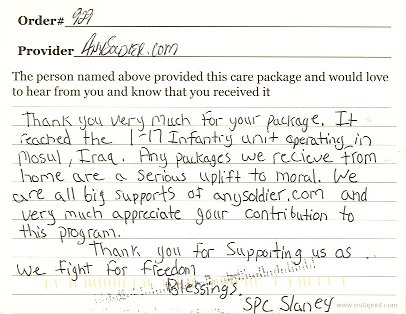 Order# 929
Provider AnySoldier.com
The person named above provided this care package and would love
to hear from you and know that you received it
Thank you very much for your package. It
reached the 1-17 Infantry unit operating in
Mosul, Iraq. Any packages we recieve from
home are a serious uplift to moral. We
are all big supports of anysoldier.com and
very much appreciate your contribution to
this program.
Thank you for Supporting us as
we fight for freedom
Blessings.
SPC Slaney
www.vistaprint.com